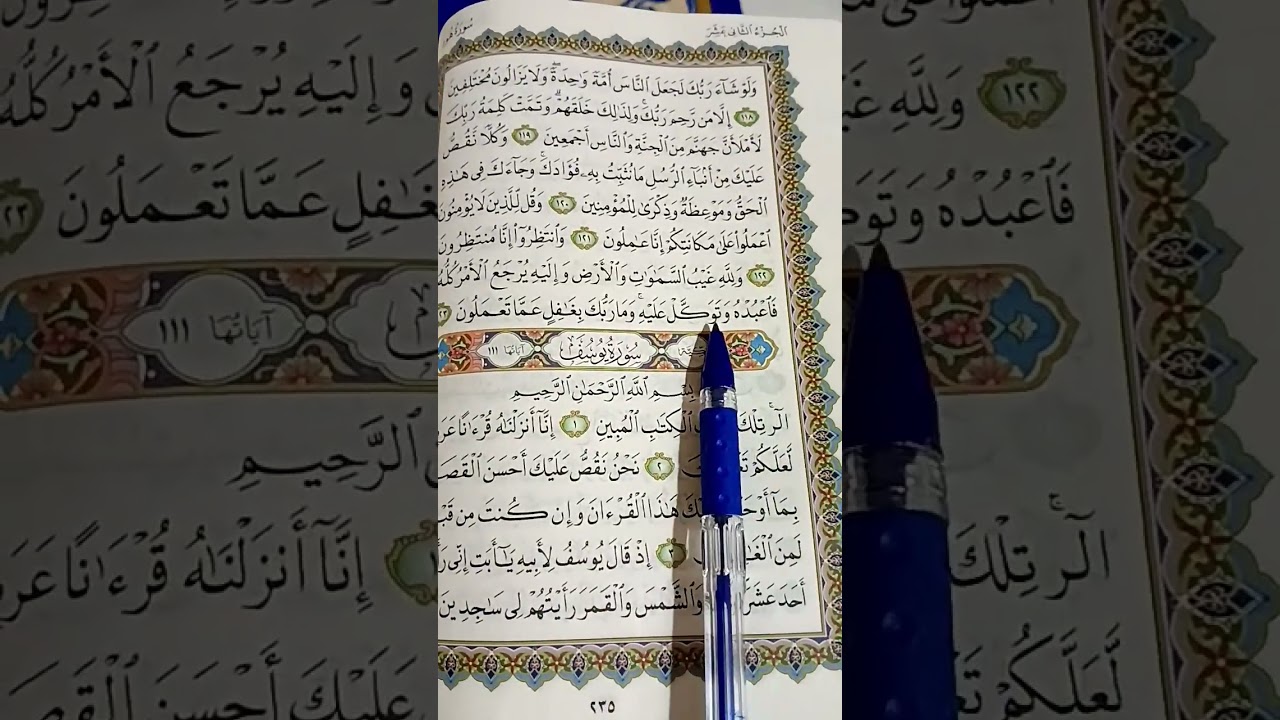 الجزء الثاني عشر
سورة هود
وَلَوْ شَآءَ رَبُّكَ لَجَعَلَ ٱلنَّاسَ أُمَّةً وَٰحِدَةً ۖ وَلَا يَزَالُونَ مُخْتَلِفِينَ
١١٨ إِلَّا مَن رَّحِمَ رَبُّكَ ۚ وَلِذَٰلِكَ خَلَقَهُمْ ۗ وَتَمَّتْ كَلِمَةُ رَبِّكَ
لَأَمْلَأَنَّ جَهَنَّمَ مِنَ ٱلْجِنَّةِ وَٱلنَّاسِ أَجْمَعِينَ ١١٩ وَكُلًّا نَّقُصُّ
عَلَيْكَ مِنْ أَنۢبَآءِ ٱلرُّسُلِ مَا نُثَبِّتُ بِهِۦ فُؤَادَكَ ۚ وَجَآءَكَ فِى هَٰذِهِ
ٱلْحَقُّ وَمَوْعِظَةٌ وَذِكْرَىٰ لِلْمُؤْمِنِينَ ١٢٠ وَقُل لِّلَّذِينَ لَا يُؤْمِنُونَ
ٱعْمَلُوا۟ عَلَىٰ مَكَانَتِكُمْ إِنَّا عَٰمِلُونَ ١٢١ وَٱنتَظِرُوٓا۟ إِنَّا مُنتَظِرُونَ
١٢٢ وَلِلَّهِ غَيْبُ ٱلسَّمَٰوَٰتِ وَٱلْأَرْضِ وَإِلَيْهِ يُرْجَعُ ٱلْأَمْرُ كُلُّهُ
فَٱعْبُدْهُ وَتَوَكَّلْ عَلَيْهِ ۚ وَمَا رَبُّكَ بِغَٰفِلٍ عَمَّا تَعْمَلُونَ
سُورَةُ يُوسُفَ آياتها ١١١
بِسْمِ ٱللَّهِ ٱلرَّحْمَٰنِ ٱلرَّحِيمِ
الٓر ۚ تِلْكَ ٱلْكِتَٰبِ ٱلْمُبِينِ ١ إِنَّآ أَنزَلْنَٰهُ قُرْءَٰنًا
لَّعَلَّكُمْ ٢ نَحْنُ نَقُصُّ عَلَيْكَ أَحْسَنَ
بِمَآ هَٰذَا ٱلْقُرْءَانَ وَإِن كُنتَ مِن
لَمِنَ ٣ إِذْ قَالَ يُوسُفُ لِأَبِيهِ يَٰٓأَبَتِ إِنِّى
أَحَدَ عَشَرَ وَٱلشَّمْسَ وَٱلْقَمَرَ رَأَيْتُهُمْ لِى سَٰجِدِينَ
٢٣٥